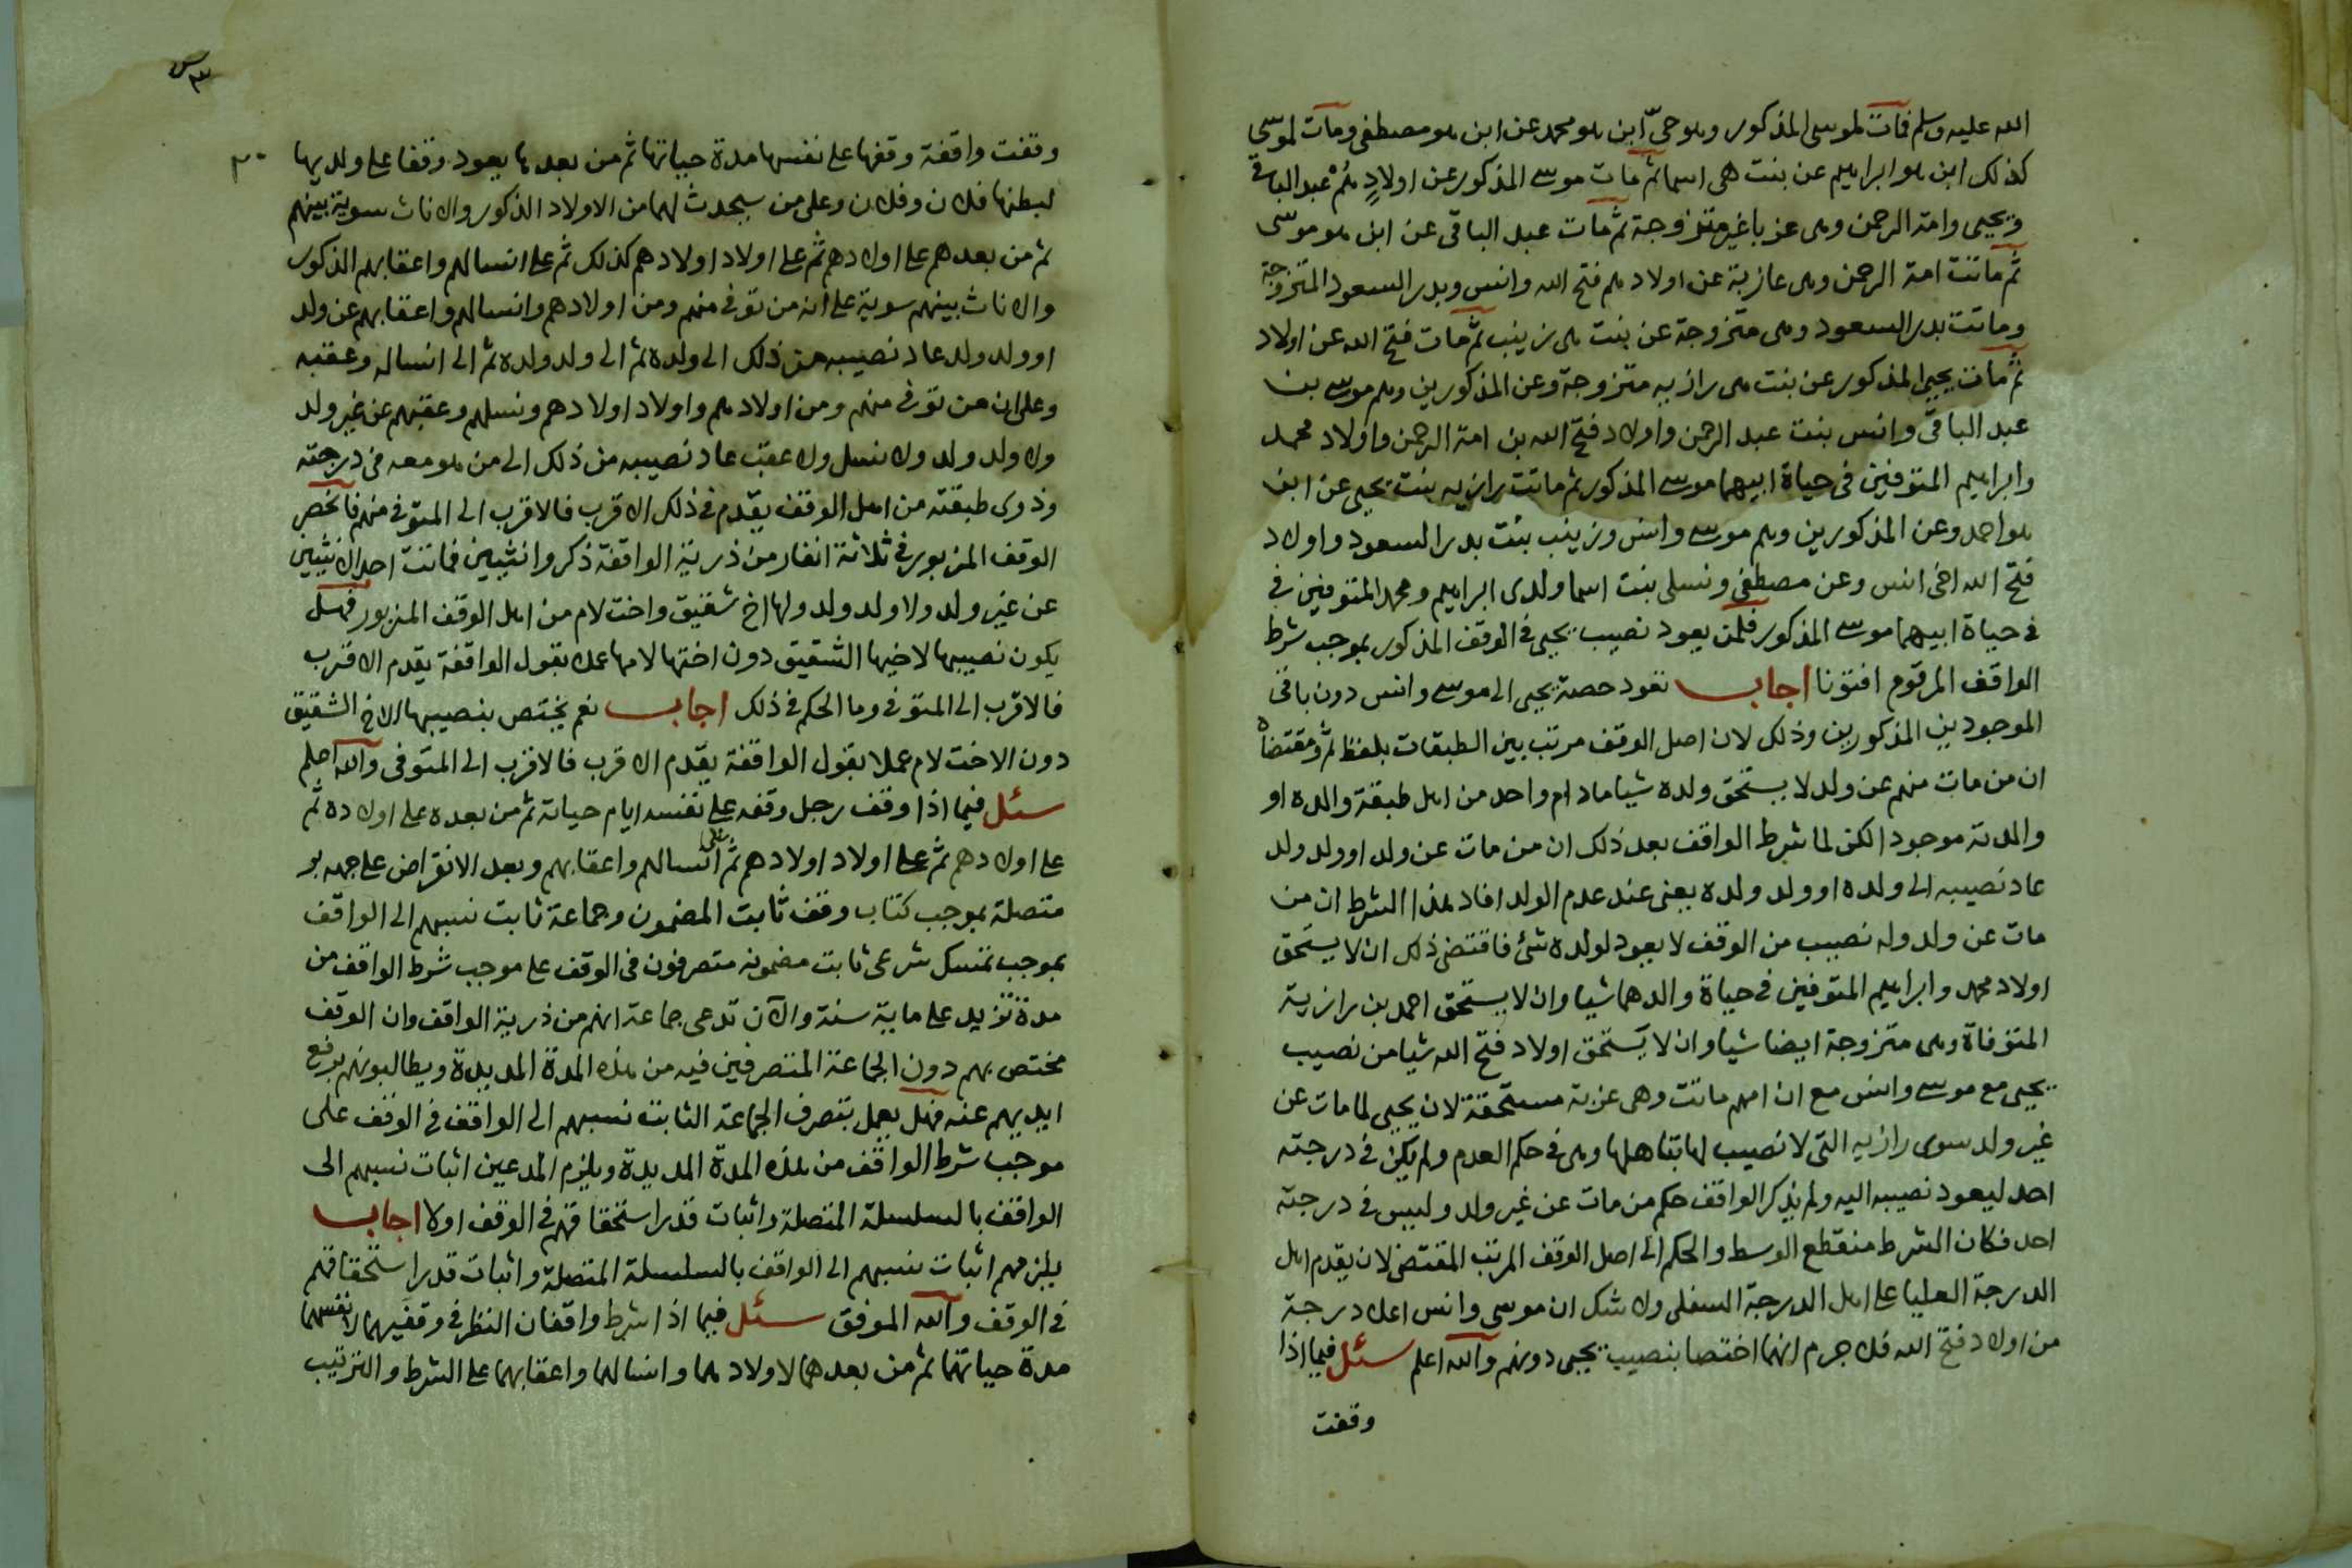 الله عليه وسلم فمات لموسى المذكور وهو حىّ ابن هو محمد عن ابن هو مصطفى ومات لموسى
كذلك ابن هو ابراهيم عن بنت هى اسما ثم مات موسى المذكور عن اولادٍ هُمْ عبد الباقى
ويحيى وامة الرحمن وهى عزبا غير متزوجة ثم مات عبد الباقى عن ابن هو موسى
ثم ماتت امة الرحمن وهى عازبة عن اولاد هم فتح الله وانس وبدر السعود المتزوجة
وماتت بدر السعود وهى متزوجة عن بنت هى زينب ثم مات فتح الله عن اولاد
ثم مات يحيى المذكور عن بنت هى رازيه متزوجة وعن المذكورين وهم موسى بن
عبد الباقى وانس بنت عبد الرحمن واولاد فتح الله بن امة الرحمن واولاد محمد
وابراهيم المتوفين فى حياة ابيهما موسى المذكور ثم ماتت رازيه بنت يحيى عن ابن
هو احمد وعن المذكورين وهم موسى وانس وزينب بنت بدر السعود واولاد
فتح الله اخى انس وعن مصطفى ونسلى بنت اسما ولدى ابراهيم ومحمد المتوفين فى
فى حياة ابيهما موسى المذكور فلمن يعود نصيب يحيى فى الوقف المذكور بموجب شرط
الواقف المرقوم افتونا اجاب تعود حصة يحيى الى موسى وانس دون باقى
الموجودين المذكورين وذلك لان اصل الوقف مرتب بين الطبقات بلفظ ثم ومقتضاه
ان من مات منهم عن ولد لا يستحق ولده شيا ما دام واحد من اهل طبقة والده او
والدته موجودا لكن لما شرط الواقف بعد ذلك ان من مات عن ولد او ولد ولد
عاد نصيبه الى ولده او ولد ولده يعنى عند عدم الولد افاد هذا الشرط ان من
مات عن ولد وله نصيب من الوقف لا يعود لولده شئ فاقتضى ذلك ان لا يستحق
اولاد محمد وابراهيم المتوفين فى حياة والدهما شيا وان لا يستحق احمد بن رازية
المتوفاة وهى متزوجة ايضا شيا وان لا يستحق اولاد فتح الله شيا من نصيب
يحيى مع موسى وانس مع ان امهم ماتت وهى عزبة مستحقة لان يحيى لما مات عن
غير ولد سوى رازيه التى لا نصيب لها بتاهلها وهى فى حكم العدم ولم يكن فى درجته
احد ليعود نصيبه اليه ولم يذكر الواقف حكم من مات عن غير ولد وليس فى درجته
احد فكان الشرط منقطع الوسط والحكم الى اصل الوقف المرتب المقتضى لان يقدم اهل
الدرجة العليا على اهل الدرجة السفلى ولا شك ان موسى وانس اعلا درجة
من اولاد فتح الله فلا جرم انهما اختصا بنصيب يحيى دونهم والله اعلم سئل فيما اذا
وقفت
٣٠
وقفت واقفة وقفها على نفسها مدة حياتها ثم من بعدها يعود وقفا على ولديها
لبطنها فلان وفلان وعلى من سيحدث لهما من الاولاد الذكور والاناث سوية بينهم
ثم من بعدهم على اولادهم ثم على اولاد اولادهم كذلك ثم على انسالهم واعقابهم الذكور
والاناث بينهم سوية على انه من توفى منهم ومن اولادهم وانسالهم واعقابهم عن ولد
او ولد ولد عاد نصيبه من ذلك الى ولده ثم الى ولد ولده ثم الى انساله وعقبه
وعلى ان من توفى منهم ومن اولادهم واولاد اولادهم ونسلهم وعقبهم عن غير ولد
ولا ولد ولد ولا نسل ولا عقب عاد نصيبه من ذلك الى من هو معه فى درجته
وذوى طبقته من اهل الوقف يقدم فى ذلك الاقرب فالاقرب الى المتوفى منهم فانحصر
الوقف المزبور فى ثلاثة انفار من ذرية الواقفة ذكر وانثيين فماتت احد الانثيين
عن غير ولد ولا ولد ولد ولها اخ شقيق واخت لام من اهل الوقف المزبور فهل
يكون نصيبها لاخيها الشقيق دون اختها لامها عملا بقول الواقفة يقدم الاقرب
فالاقرب الى المتوفى وما الحكم فى ذلك اجاب نعم يختص بنصيبها الاخ الشقيق
دون الاخت لام عملا بقول الواقفة يقدم الاقرب فالاقرب الى المتوفى والله اعلم
سئل فيما اذا وقف رجل وقفه على نفسه ايام حياته ثم من بعده على اولاده ثم
على اولادهم ثم على اولاد اولادهم ثم على انسالهم واعقابهم وبعد الانقراض على جهة بر
متصلة بموجب كتاب وقف ثابت المضمون وجماعة ثابت نسبهم الى الواقف
بموجب تمسك شرعى ثابت مضمونه متصرفون فى الوقف على موجب شرط الواقف من
مدة تزيد على ماية سنة والآن تدعى جماعة انهم من ذرية الواقف وان الوقف
مختص بهم دون الجماعة المتصرفين فيه من هذه المدة المديدة ويطالبونهم برفع
ايديهم عنه فهل يعمل بتصرف الجماعة الثابت نسبهم الى الواقف فى الوقف على
موجب شرط الواقف من هذه المدة المديدة ويلزم المدعين اثبات نسبهم الى
الواقف بالسلسلة المتصلة واثبات قدر استحقاقهم فى الوقف اولا اجاب
يلزمهم اثبات نسبهم الى الواقف بالسلسلة المتصلة واثبات قدر استحقاقهم
فى الوقف والله الموفق سئل فيما اذا شرط واقفان النظر فى وقفيهما لانفسهما
مدة حياتهما ثم من بعدهما لاولادهما وانسالهما واعقابهما على الشرط والترتيب